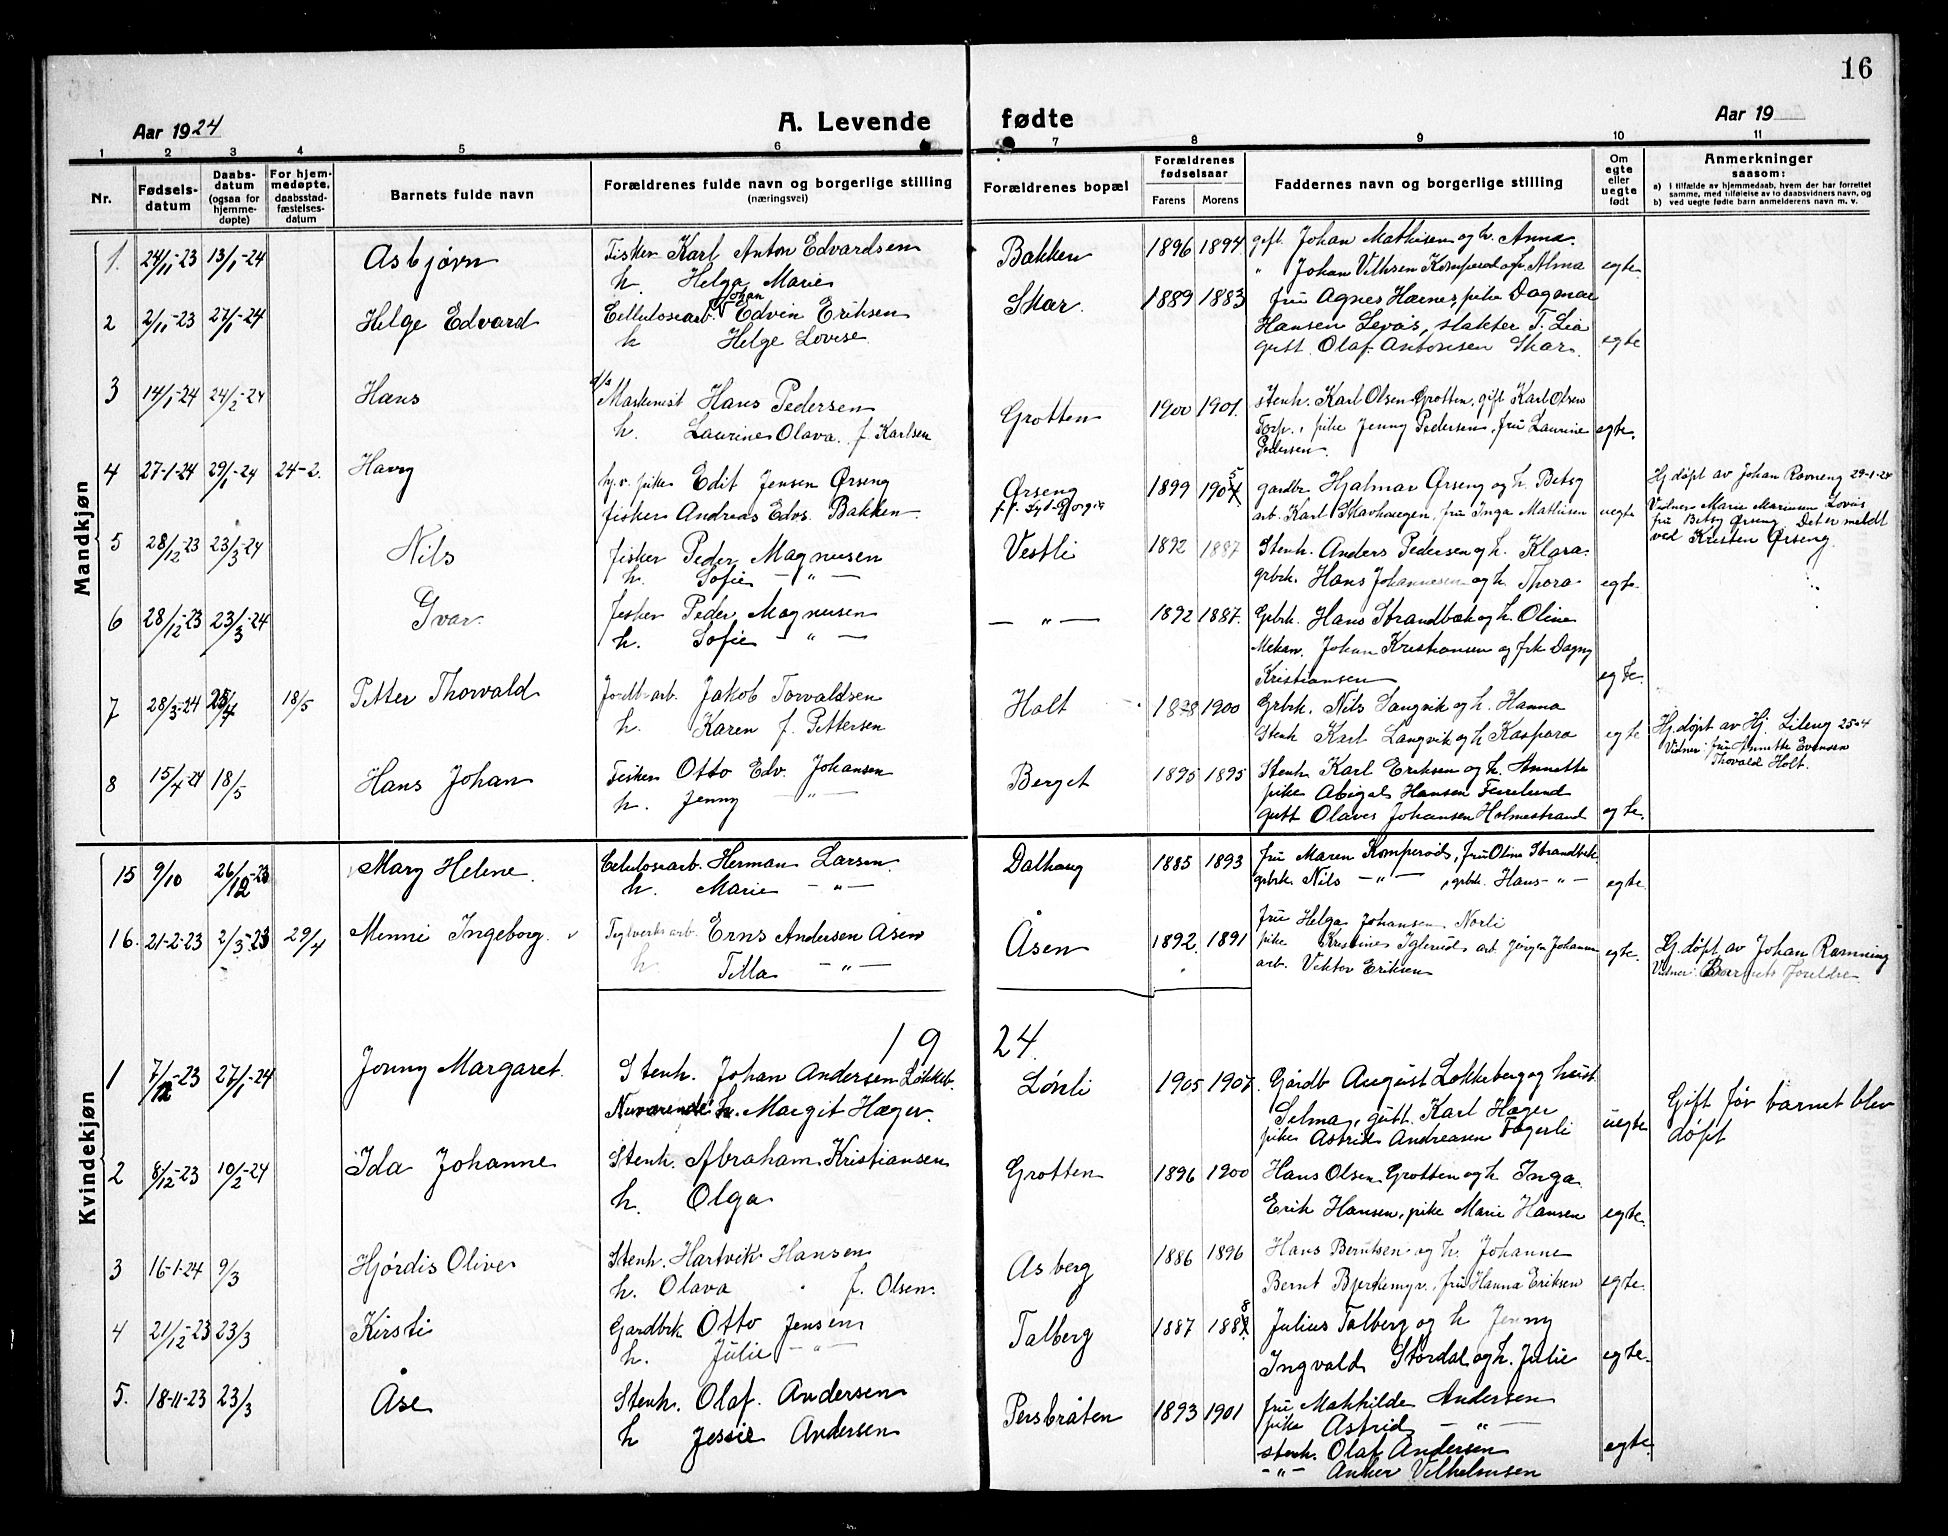 16
Aar 1924 A. Levende fødte Aar 19
1 2 3 4 5 6 7 8 9 10 11
Nr. Fødselsdatum Daabsdatum (ogsaa for hjemmedøpte) For hjemmedøpte, daabsstadfæstelsesdatum Barnets fulde navn Forældrenes fulde navn og borgerlige stilling (næringsvei) Forældrenes bopæl Forældrenes fødselsaar Farens Morens Faddernes navn og borgerlige stilling Om egte eller uegte født Anmerkninger saasom:
a) I tilfælde av hjemmedaab, hvem der har forrettet samme, med tilføielse av to daabsvidners navn, og
b) ved uegte fødte barn anmelderens navn m. v.
Mandkjøn
1. 24/11-23 13/1-24 Asbjørn Fisker Karl Anton Edvardsen Bakken 1896 1894 gift. Johan Mathisen og h. Anna.
h. Helga Marie " Johan Vilhsen Komperød og h. Alma egte
2 2/11-23 27/1-24 Helge Edvard Cellulosearb. Johan Edvin Eriksen Skar. 1889 1883 fru Agnes Hærnes, pike Dagmar
h Helge Lovise. Hansen Levås, slakter T. Lia
gutt. Olaf Antonsen Skar. egte
3 14/1-24 24/2-24 Hans d/s Maskinist Hans Pedersen Grotten 1900 1901. Stenh. Karl Olsen Grotten, gift Karl Olsen
h. Laurine Olava. f. Karlsen Torp., pike Jenny Pedersen, fru Laurine egte.
Pedersen.
4 27-1-24 29/1-24 24-2. Harry pike Edit Jensen Ørseng Ørseng 1899 1905 gardbr. Hjalmar Ørseng og h. Betsy Hj. døpt av Johan Ravneng 29-1-24
fisker Andreas Edvs. Bakken arb. Karl Skavhaugen, fru Inga Mathisen uegte Vidner Marie Marinsen Lovås
fru Betsy Ørseng. Det er meldt
5 28/12-23 23/3-24 Nils fisker Peder Magnusen Vestli 1892 1887 Stenh. Anders Pedersen og h. Klara. ved Kristen Ørseng.
h. Sofie — " — grbrk. Hans Johannesen og h. Thora egte.
6 28/12-23 23/3-24 Ivar. fisker Peder Magnusen — " — 1892 1887. Grbrk. Hans Strandbæk og h. Oline
h. Sofie — " — Mekan. Johan Kristiansen og frk Dagny
Kristiansen egte.
7 28/3-24 25/4 18/5 Petter Thorvald Jordbarb. Jakob Torvaldsen Holt 1898 1900 Grbrk. Nils Langvik og h. Hanna
h. Karen f. Pettersen Stenh Karl Langvik og h Kaspara egte Hj. døpt av Hj. Lileng 25-4
Vidner: fru Annette Evensen
Thovald Holt.
8 15/4-24 18/5 Hans Johan Fisker Otto Edv. Johansen Berget 1895 1895 Stenh. Karl Eriksen og h. Annette
h. Jenny — " — pike Abigal Hansen Furulund
gutt Olaves Johansen Holmestrand egte.
Kvindekjøn
15 9/10 26/12-23 Mary Helene. Celulosearb. Herman Larsen. Dalhaug 1885 1893 fru Maren Komperød, fru Oline Strandbek
h. Marie — " — grbrk. Nils — " —, grbrk. Hans — " — egte.
16. 21-2-23 2/3-23 29/4 Menni Ingeborg. Teglverksarb. Erns Andersen Åsen Åsen 1892. 1891 fru Helga Johansen Norli
h Tilla — " — pike Kristine Iglerud arb. Jørgen Johansen egte. Hj. døpt av Johan Ramning
arb. Viktor Eriksen Vidner: Barnets Foreldre.
1924.
1 7/12-23 27/1-24 Jonny Margaret. Stenh. Johan Andersen Løkkeb. Lønli 1905 1907. Gårdb August Lokkeberg og hust.
Nuværende h. Margit Hæger. Selma, gutt. Karl Hæger Gift før barnet blev
pike Astrid Andreasen Fagerli uegte døpt
2 8/12-23 10/2-24 Ida Johanne Stenh. Abraham Kristiansen Grotten 1896 1900 Hans Olsen Grotten og h Inga.
h. Olga Erik Hansen, pike Marie Hansen egte.
3 16-1-24 9/3 Hjørdis Olive Stenh. Hartvik Hansen Asberg 1886 1896 Hans Berntsen og h. Johanne
h. Olava f. Olsen. Bernt Bjerkemyr, fru Hanna Eriksen egte.
4 21/12-23 23/3 Kirsti Gardbrk Otto Jensen Talberg 1887 1888 Julius Talberg og h Jenny
h. Julie — " — Ingvald Stordal og h. Julie egte.
5. 18-11-23 23/3 Åse Stenh. Olaf Andersen Persbråten 1893 1901 fru Makhilde Andersen
h Jessie Andersen pike Astrid — " —
stenh. Olaf Andersen egte.
— " — Anker Vilhelmsen